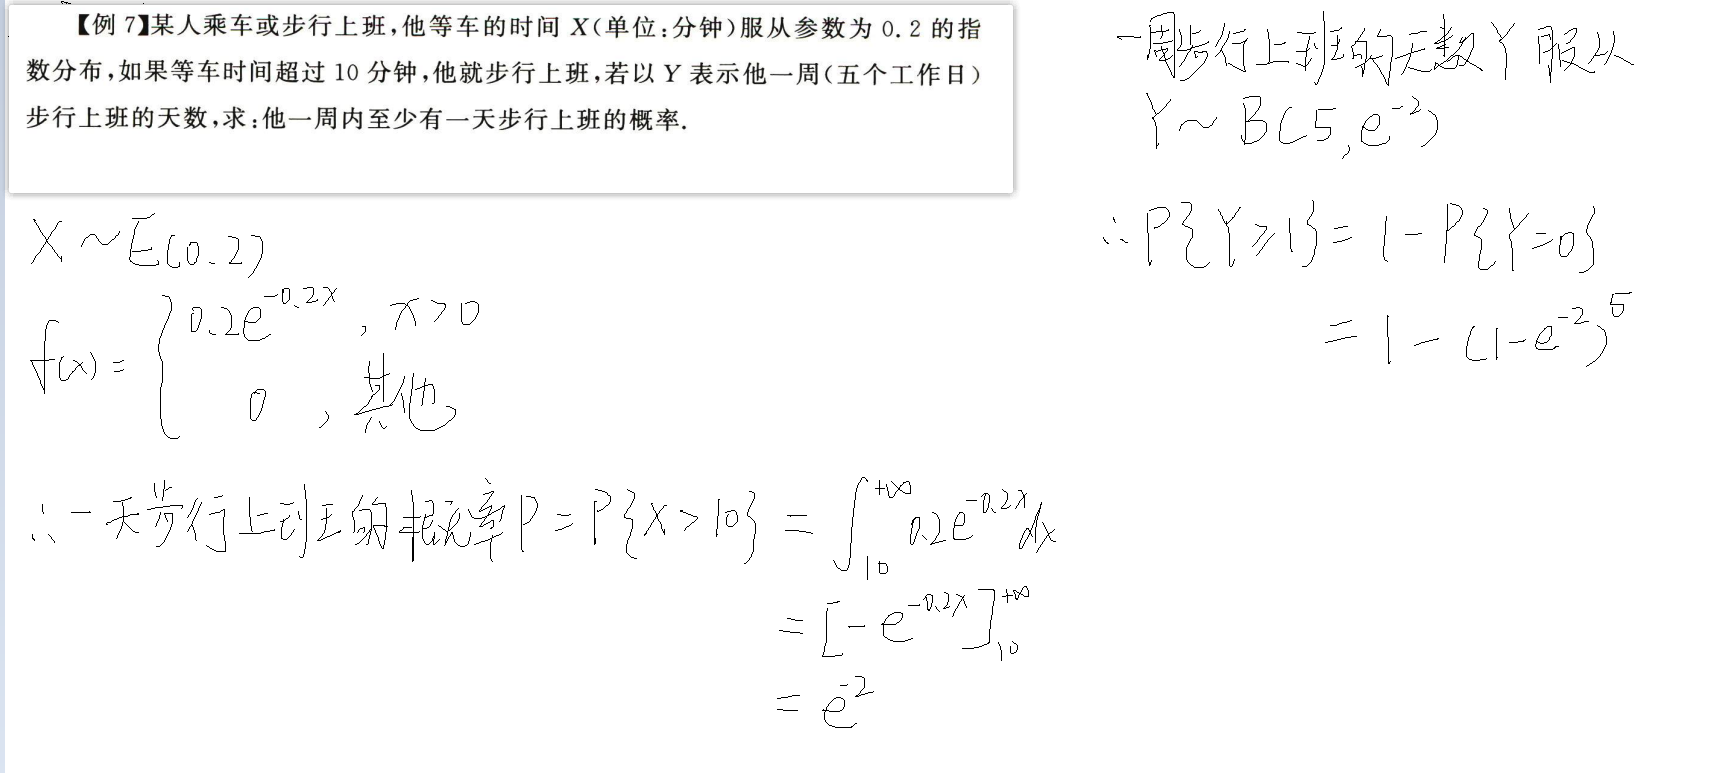 【例 7】某人乘车或步行上班,他等车的时间 X(单位:分钟)服从参数为 0.2 的指
数分布,如果等车时间超过 10 分钟,他就步行上班,若以 Y 表示他一周(五个工作日)
步行上班的天数,求:他一周内至少有一天步行上班的概率.
X～E(0.2)
f(x) = { 0.2e^{-0.2x} , x>0
0 , 其他
∴一天步行上班的概率P = P{X>10} = ∫_{10}^{+∞} 0.2e^{-0.2x}dx
= [-e^{-0.2x}]_{10}^{+∞}
= e^{-2}
一周步行上班的天数Y服从
Y～B(5,e^{-2})
∴P{Y≥1} = 1-P{Y=0}
= 1-(1-e^{-2})^5